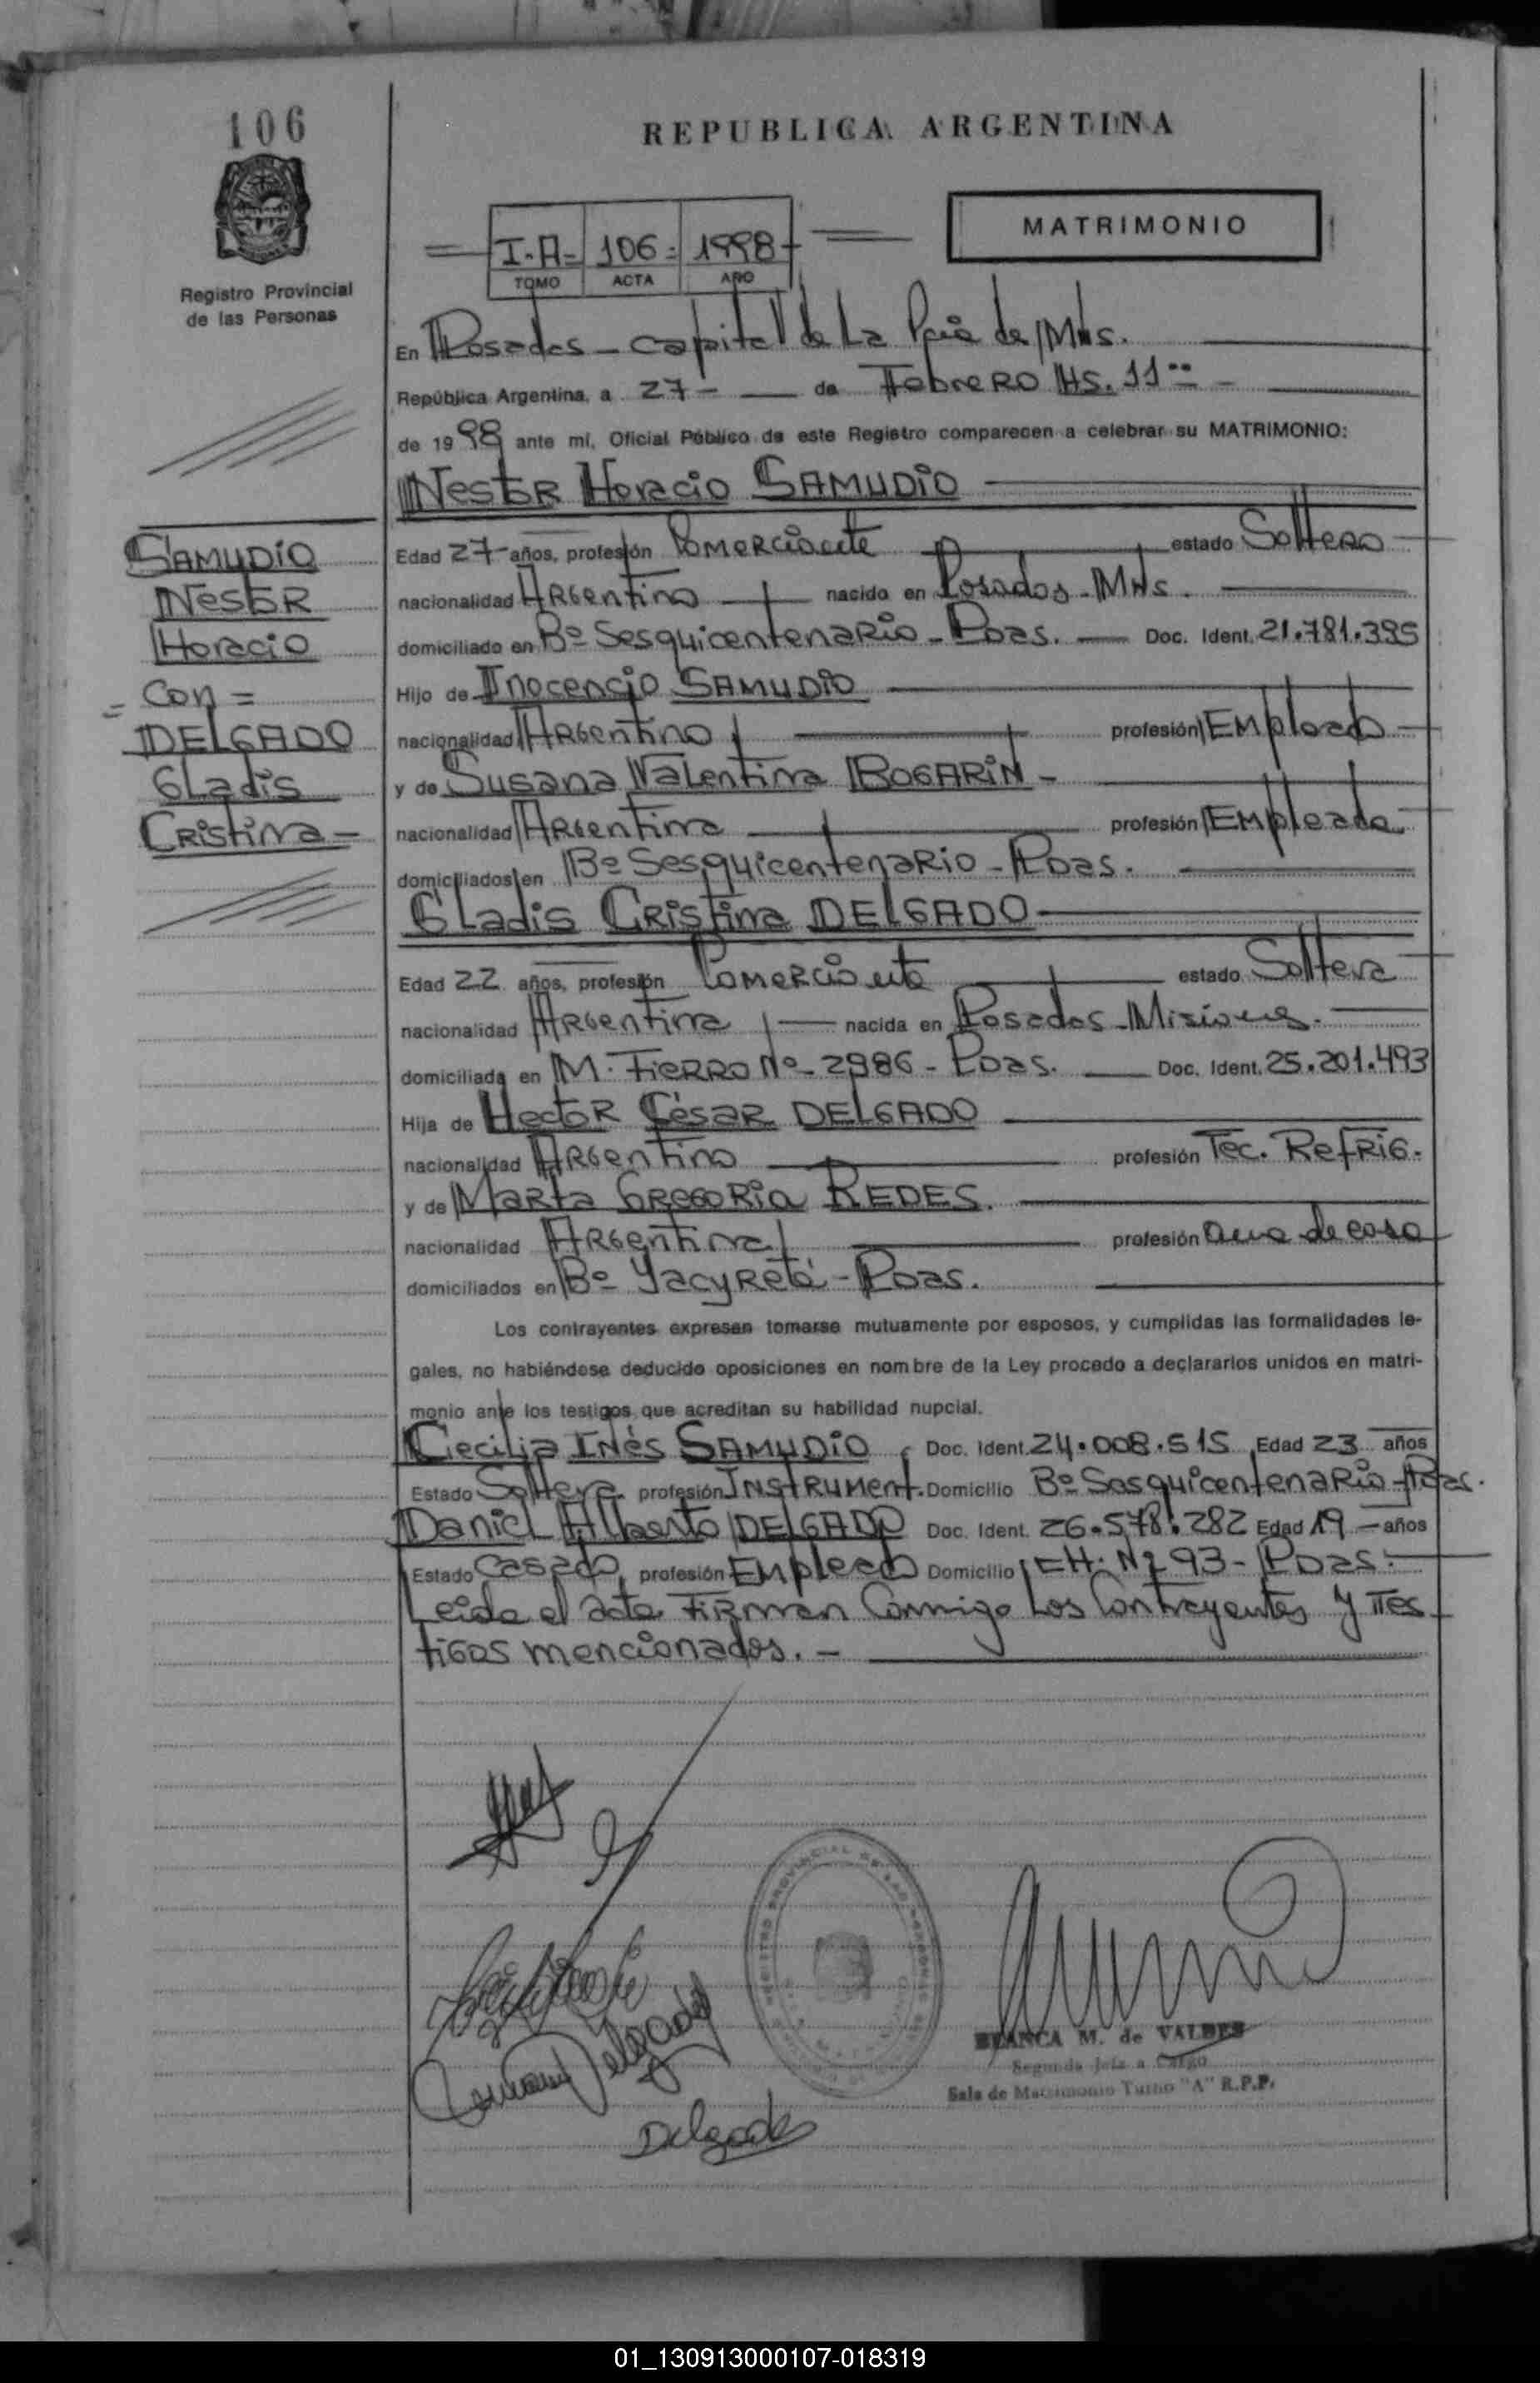 106
REPUBLICA ARGENTINA
MATRIMONIO
I-A- 106- 1998-
TOMO ACTA AÑO
Registro Provincial
de las Personas
En Posadas - Capital de La Pcia de Mns.
República Argentina, a 27- de Febrero Hs. 11
de 1998 ante mí, Oficial Público de este Registro comparecen a celebrar su MATRIMONIO:
Nestor Horacio SAMUDIO
SAMUDIO
Nestor
Horacio
= Con =
DELGADO
Gladis
Cristina -
Edad 27 años, profesión Comerciante estado Soltero
nacionalidad Argentino nacido en Posadas - Mns.
domiciliado en Bº Sesquicentenario - Pdas. Doc. Ident. 21.781.395
Hijo de Inocencio SAMUDIO
nacionalidad Argentino profesión Empleado
y de Susana Valentina BOGARIN -
nacionalidad Argentina profesión Empleada
domiciliados en Bº Sesquicentenario - Pdas.
Gladis Cristina DELGADO
Edad 22 años, profesión Comerciante estado Soltera
nacionalidad Argentina nacida en Posadas - Misiones.
domiciliada en M. Fierro Nº 2986 - Pdas. Doc. Ident. 25.201.493
Hija de Hector César DELGADO
nacionalidad Argentino profesión Tec. Refrig.
y de Marta Gregoria REDES.
nacionalidad Argentina profesión ama de casa
domiciliados en Bº Yacyretá - Pdas.
Los contrayentes expresan tomarse mutuamente por esposos, y cumplidas las formalidades le-
gales, no habiéndose deducido oposiciones en nombre de la Ley procedo a declararlos unidos en matri-
monio ante los testigos que acreditan su habilidad nupcial.
Cecilia Inés SAMUDIO Doc. Ident. 24.008.515 Edad 23 años
Estado Soltera profesión Instrument. Domicilio Bº Sesquicentenario - Pdas.
Daniel Alberto DELGADO Doc. Ident. 26.578.282 Edad 19 - años
Estado Casado profesión Empleado Domicilio CH. Nº 93 - Pdas.
Leida el acta Firman Conmigo Los Contrayentes y Tes
tigos mencionados. -
Delgado
Delgado
BLANCA M. de VALDES
Segunda Jefa a Cargo
Sala de Matrimonio Turno "A" R.P.P.
01_130913000107-018319